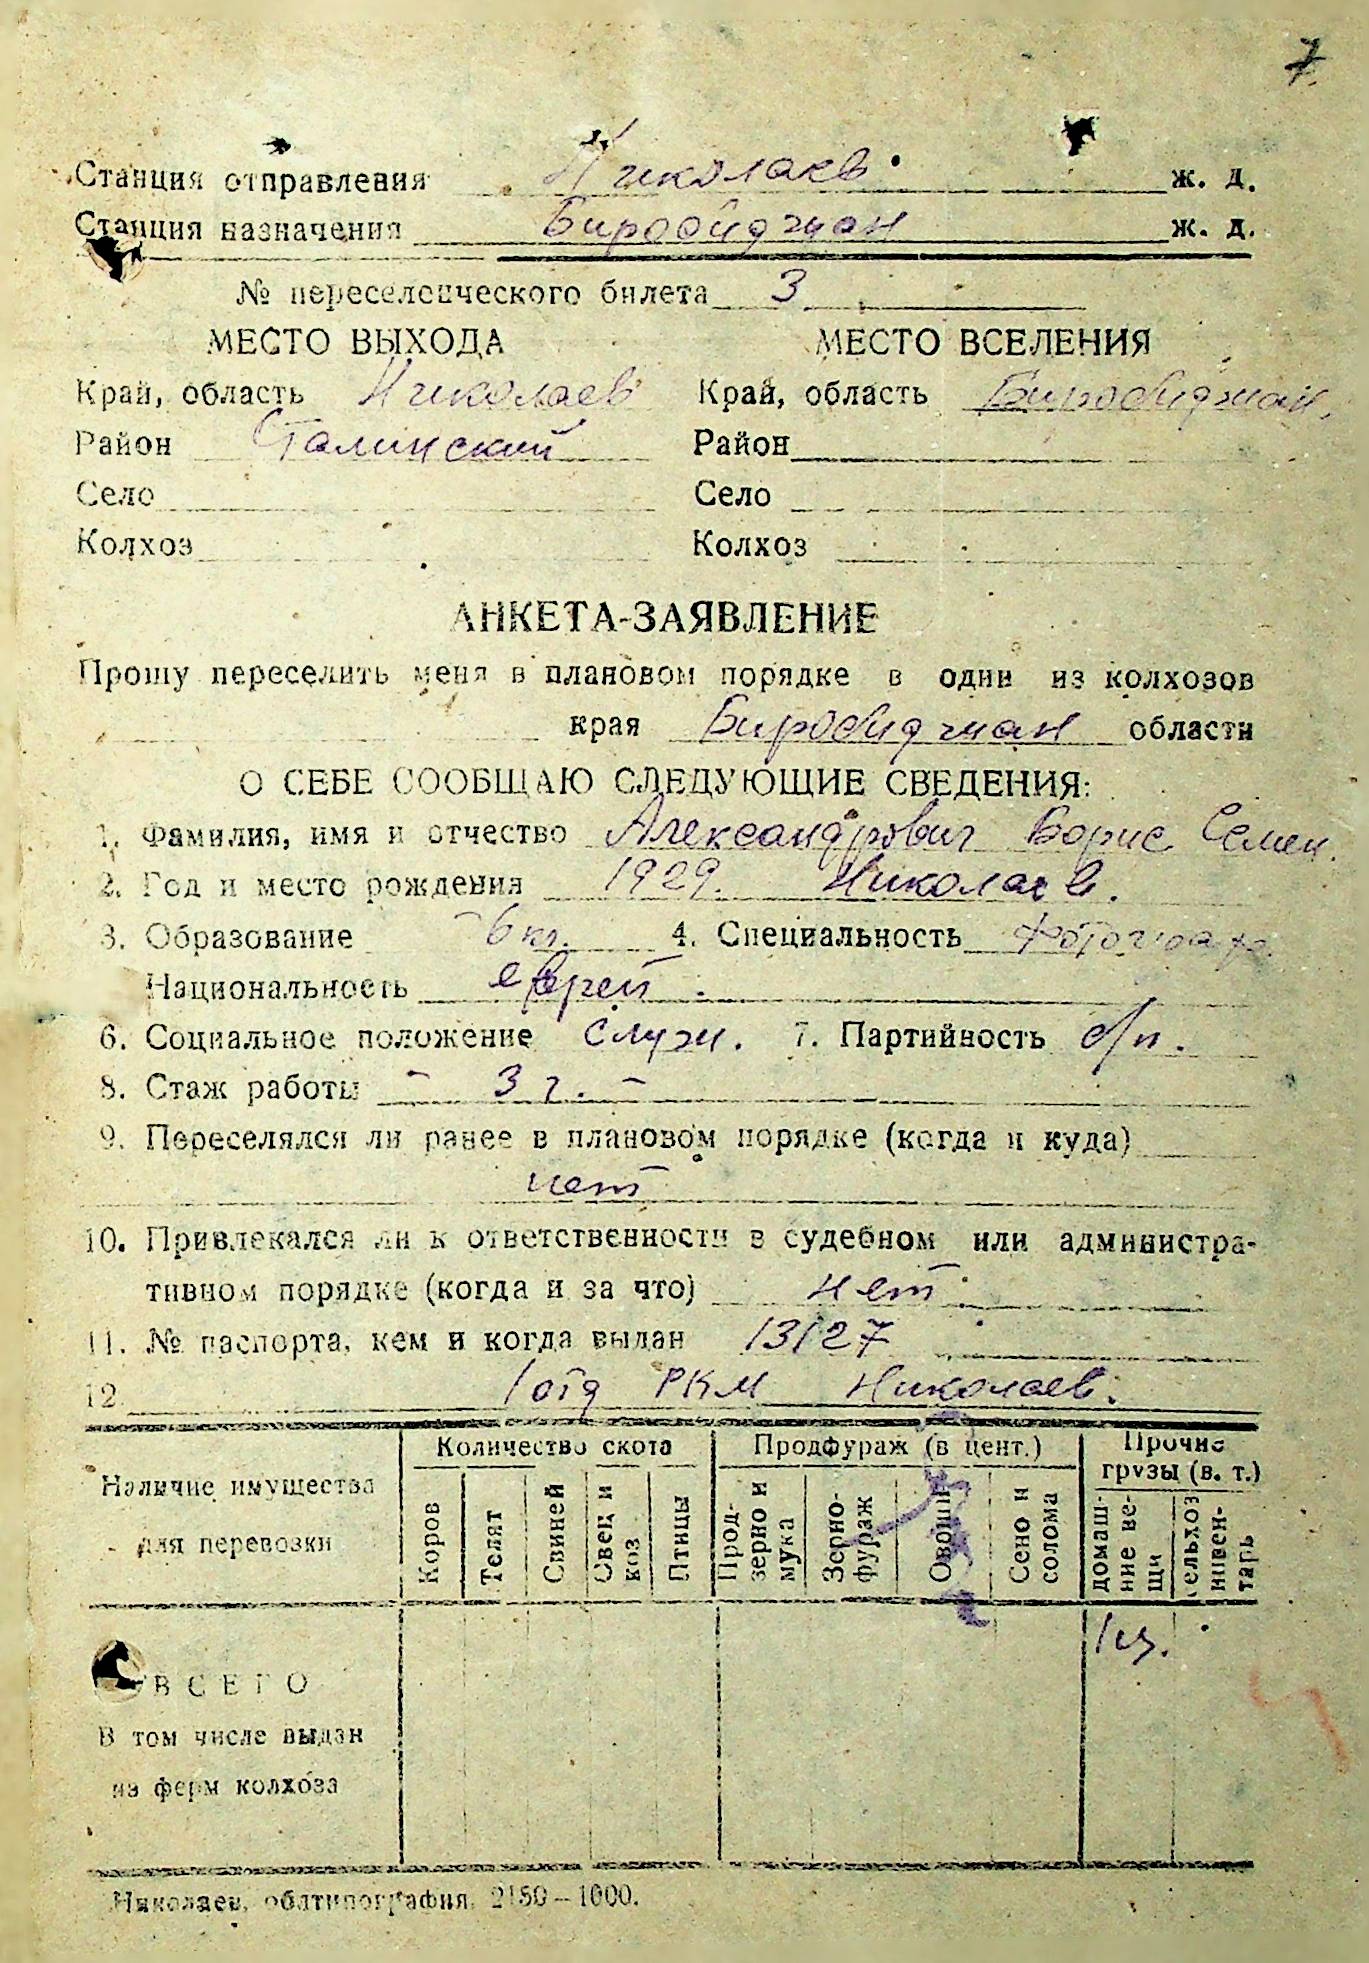 7.
Станция отправления Николаев ж. д.
Станция назначения Биробиджан ж. д.
№ переселенческого билета 3
МЕСТО ВЫХОДА МЕСТО ВСЕЛЕНИЯ
Край, область Николаев Край, область Биробиджан.
Район Сталинский Район
Село Село
Колхоз Колхоз
АНКЕТА-ЗАЯВЛЕНИЕ
Прошу переселить меня в плановом порядке в один из колхозов
края Биробиджан области
О СЕБЕ СООБЩАЮ СЛЕДУЮЩИЕ СВЕДЕНИЯ:
1. Фамилия, имя и отчество Александрович Борис Семен.
2. Год и место рождения 1929. Николаев.
3. Образование 6 кл. 4. Специальность фотограф.
Национальность еврей.
6. Социальное положение служ. 7. Партийность б/п.
8. Стаж работы - 3 г. -
9. Переселялся ли ранее в плановом порядке (когда и куда)
нет
10. Привлекался ли к ответственности в судебном или администра-
тивном порядке (когда и за что) нет.
11. № паспорта, кем и когда выдан 13127
12. 1 отд РКМ Николаев.
Наличие имущества для перевозки
Количество скота
Коров
Телят
Свиней
Овец и коз
Птицы
Продфураж (в цент.)
Прод-зерно и мука
Зерно-фураж
Овощи
Сено и солома
Прочие грузы (в. т.)
домаш-ние ве-щи
сельхоз инвен-тарь
ВСЕГО 1 ц.
В том числе выдан
из ферм колхоза
Николаев, облтипография, 2150–1000.